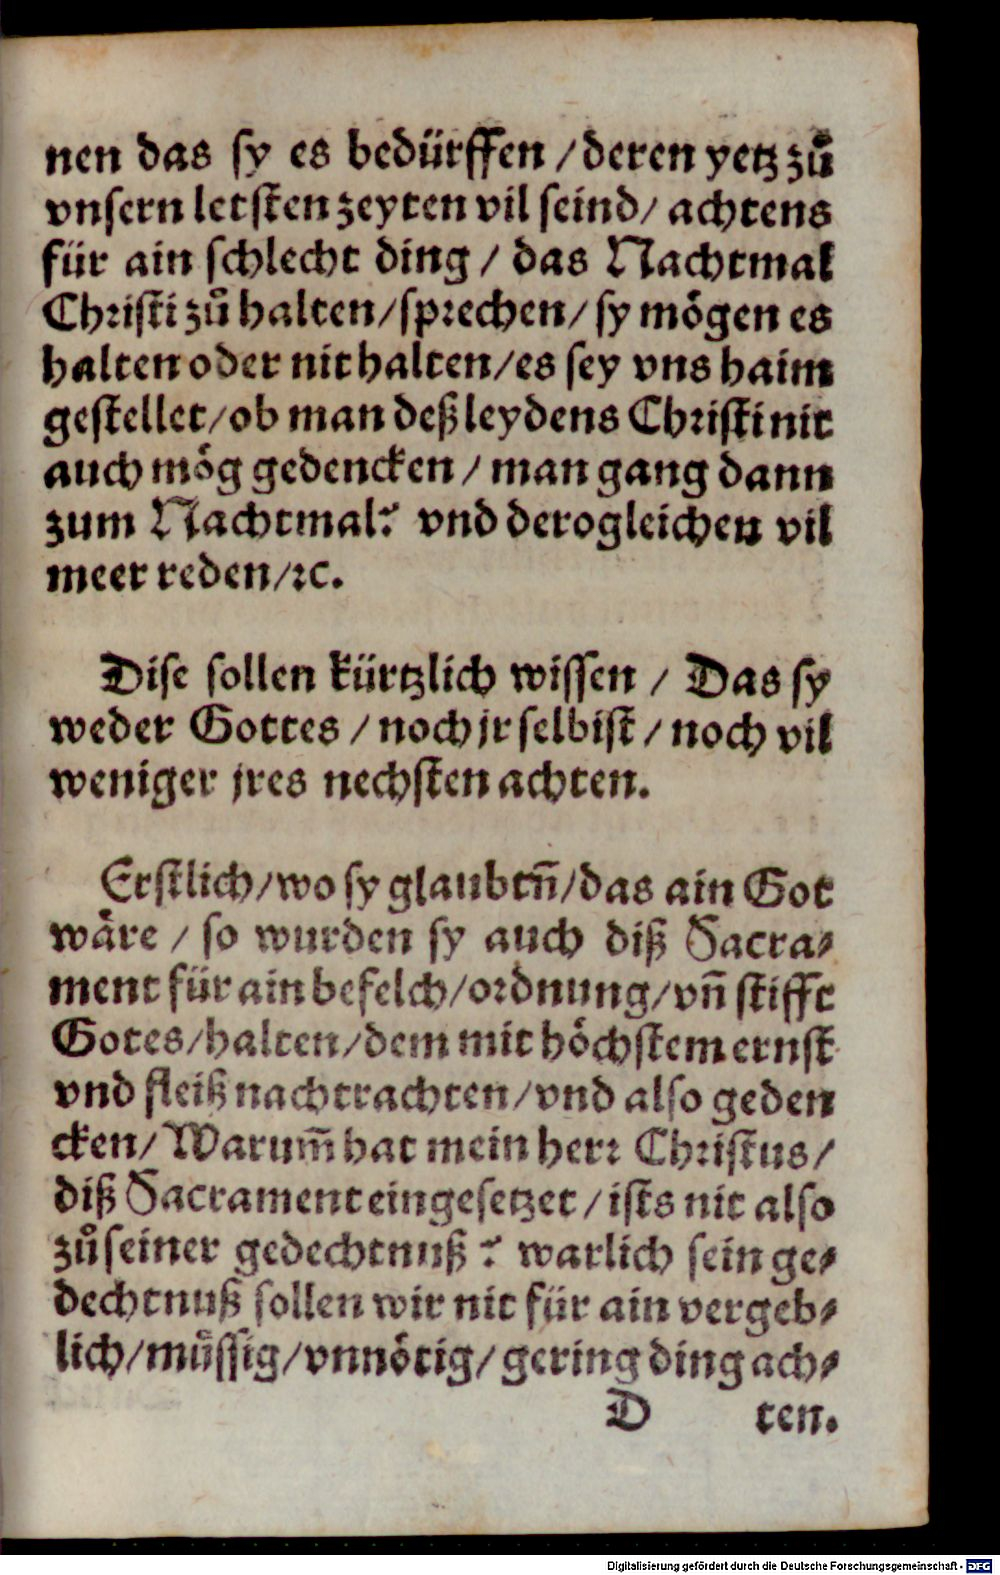 nen das sy es bedürffen / deren yetz zuͦ
vnsern letsten zeyten vil seind / achtens
für ain schlecht ding / das Nachtmal
Christi zuͦ halten / sprechen / sy moͤgen es
halten oder nit halten / es sey vns haim
gestellet / ob man deß leydens Christi nit
auch moͤg gedencken / man gang dann
zum Nachtmal? vnd derogleichen vil
meer reden / ꝛc.
Dise sollen kürtzlich wissen / Das sy
weder Gottes / noch jr selbist / noch vil
weniger jres nechsten achten.
Erstlich / wo sy glaubtn̄ / das ain Got
waͤre / so wurden sy auch diß Sacra⸗
ment für ain befelch / ordnung / vn̄ stifft
Gotes / halten / dem mit hoͤchstem ernst
vnd fleiß nachtrachten / vnd also geden
cken / Warum̄ hat mein herr Christus /
diß Sacrament eingesetzet / ists nit also
zuͦ seiner gedechtnuß? warlich sein ge⸗
dechtnuß sollen wir nit für ain vergeb⸗
lich / muͤssig / vnnoͤtig / gering ding ach⸗
D ten.
Digitalisierung gefördert durch die Deutsche Forschungsgemeinschaft - DFG